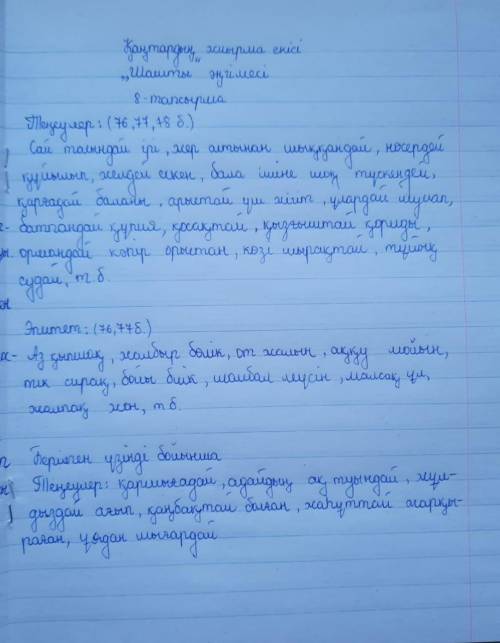 Қаңтардың жиырма екісі
„Шашты" әңгімесі
8-тапсырма
Теңеулер: (76,77,78 б.)
Сай тасындай ірі, жер астынан шыққандай, нөсердей
құйылып, желдей ескен, бала ішіне шоқ түскендей,
қарғадай баланы, арыстай үш жігіт, ұлардай шулап,
батпандай құрия, қосақтай, қызғыштай қориды,
ормандай көпір орыстан, көзі шырақтай, тұйық
судай, т.б.
Эпитет: (76,77б.)
Аз қыпшақ, жалбыр бөлік, от жалын, аққу мойын,
тік сирақ, бойы биік, шамбал төсін, малсақ ұл,
жалпақ жон, т.б.
Берілген үзінді бойынша
Теңеулер: қаршығадай, адайдың ақ туындай, жұл-
дыздай ағып, қаңбақтай болған, жақұттай жарқы-
раған, ұядан шығардай